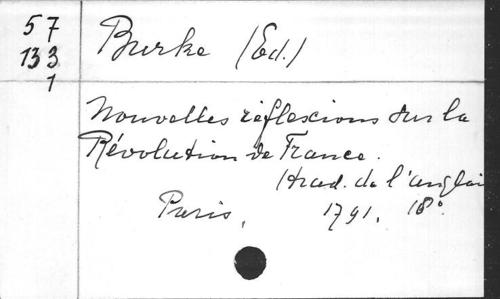 57
133
1
Burke (Ed.)
Nouvelles réflexions sur la
Révolution de France.
(trad. de l'anglai
Paris, 1791. 18°.